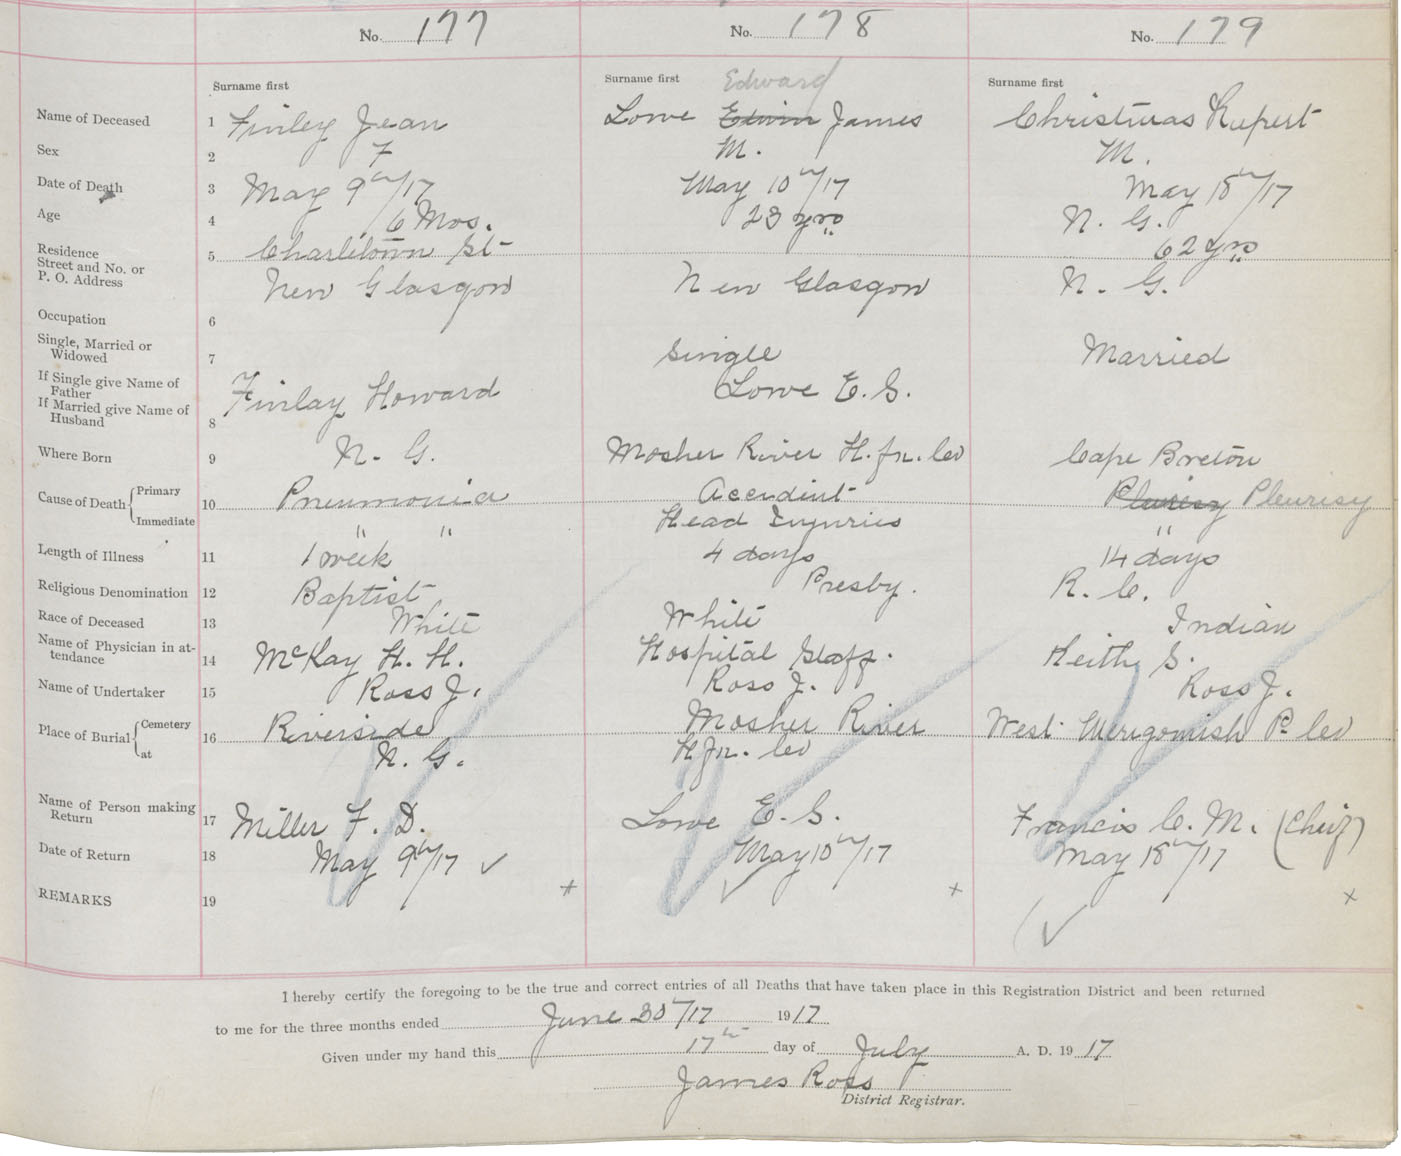 No. 177 No. 178 No. 179
Surname first Surname first Edward Surname first
Name of Deceased 1 Finley Jean Lowe Edwin James Christmas Rupert
Sex 2 F M. M.
Date of Death 3 May 9th/17 May 10th/17 May 18th/17
Age 4 6 Mos. 23 yrs N. G.
62 yrs
Residence
Street and No. or
P. O. Address
5 Charlitown St
New Glasgow New Glasgow N. G.
Occupation 6
Single, Married or
Widowed
7 Single Married
If Single give Name of
Father
If Married give Name of
Husband
8 Finlay Howard Lowe E. S.
Where Born 9 N. G. Mosher River H.fx. Co Cape Breton
Cause of Death Primary 10 Pneumonia Accedint Pleuresy Pleuresy
Immediate " " Head Injuries "
Length of Illness 11 1 week 4 days 14 days
Religious Denomination 12 Baptist Presby. R. C.
Race of Deceased 13 White White Indian
Name of Physician in at-
tendance
14 McKay H. H. Hospital Staff. Keith S.
Name of Undertaker 15 Ross J. Ross J. Ross J.
Place of Burial Cemetery 16 Riverside Mosher River West Merigomish P. Co
at N. G. Hfx. Co
Name of Person making
Return
17 Miller F. D. Lowe E. S. Francis C. M. (Chief)
Date of Return 18 May 9th/17 ✓ May 10th/17 May 18th/17
REMARKS 19 + ✓ + ✓ x
I hereby certify the foregoing to be the true and correct entries of all Deaths that have taken place in this Registration District and been returned
to me for the three months ended June 30th/17 1917
Given under my hand this 17th day of July A. D. 1917
James Ross
District Registrar.